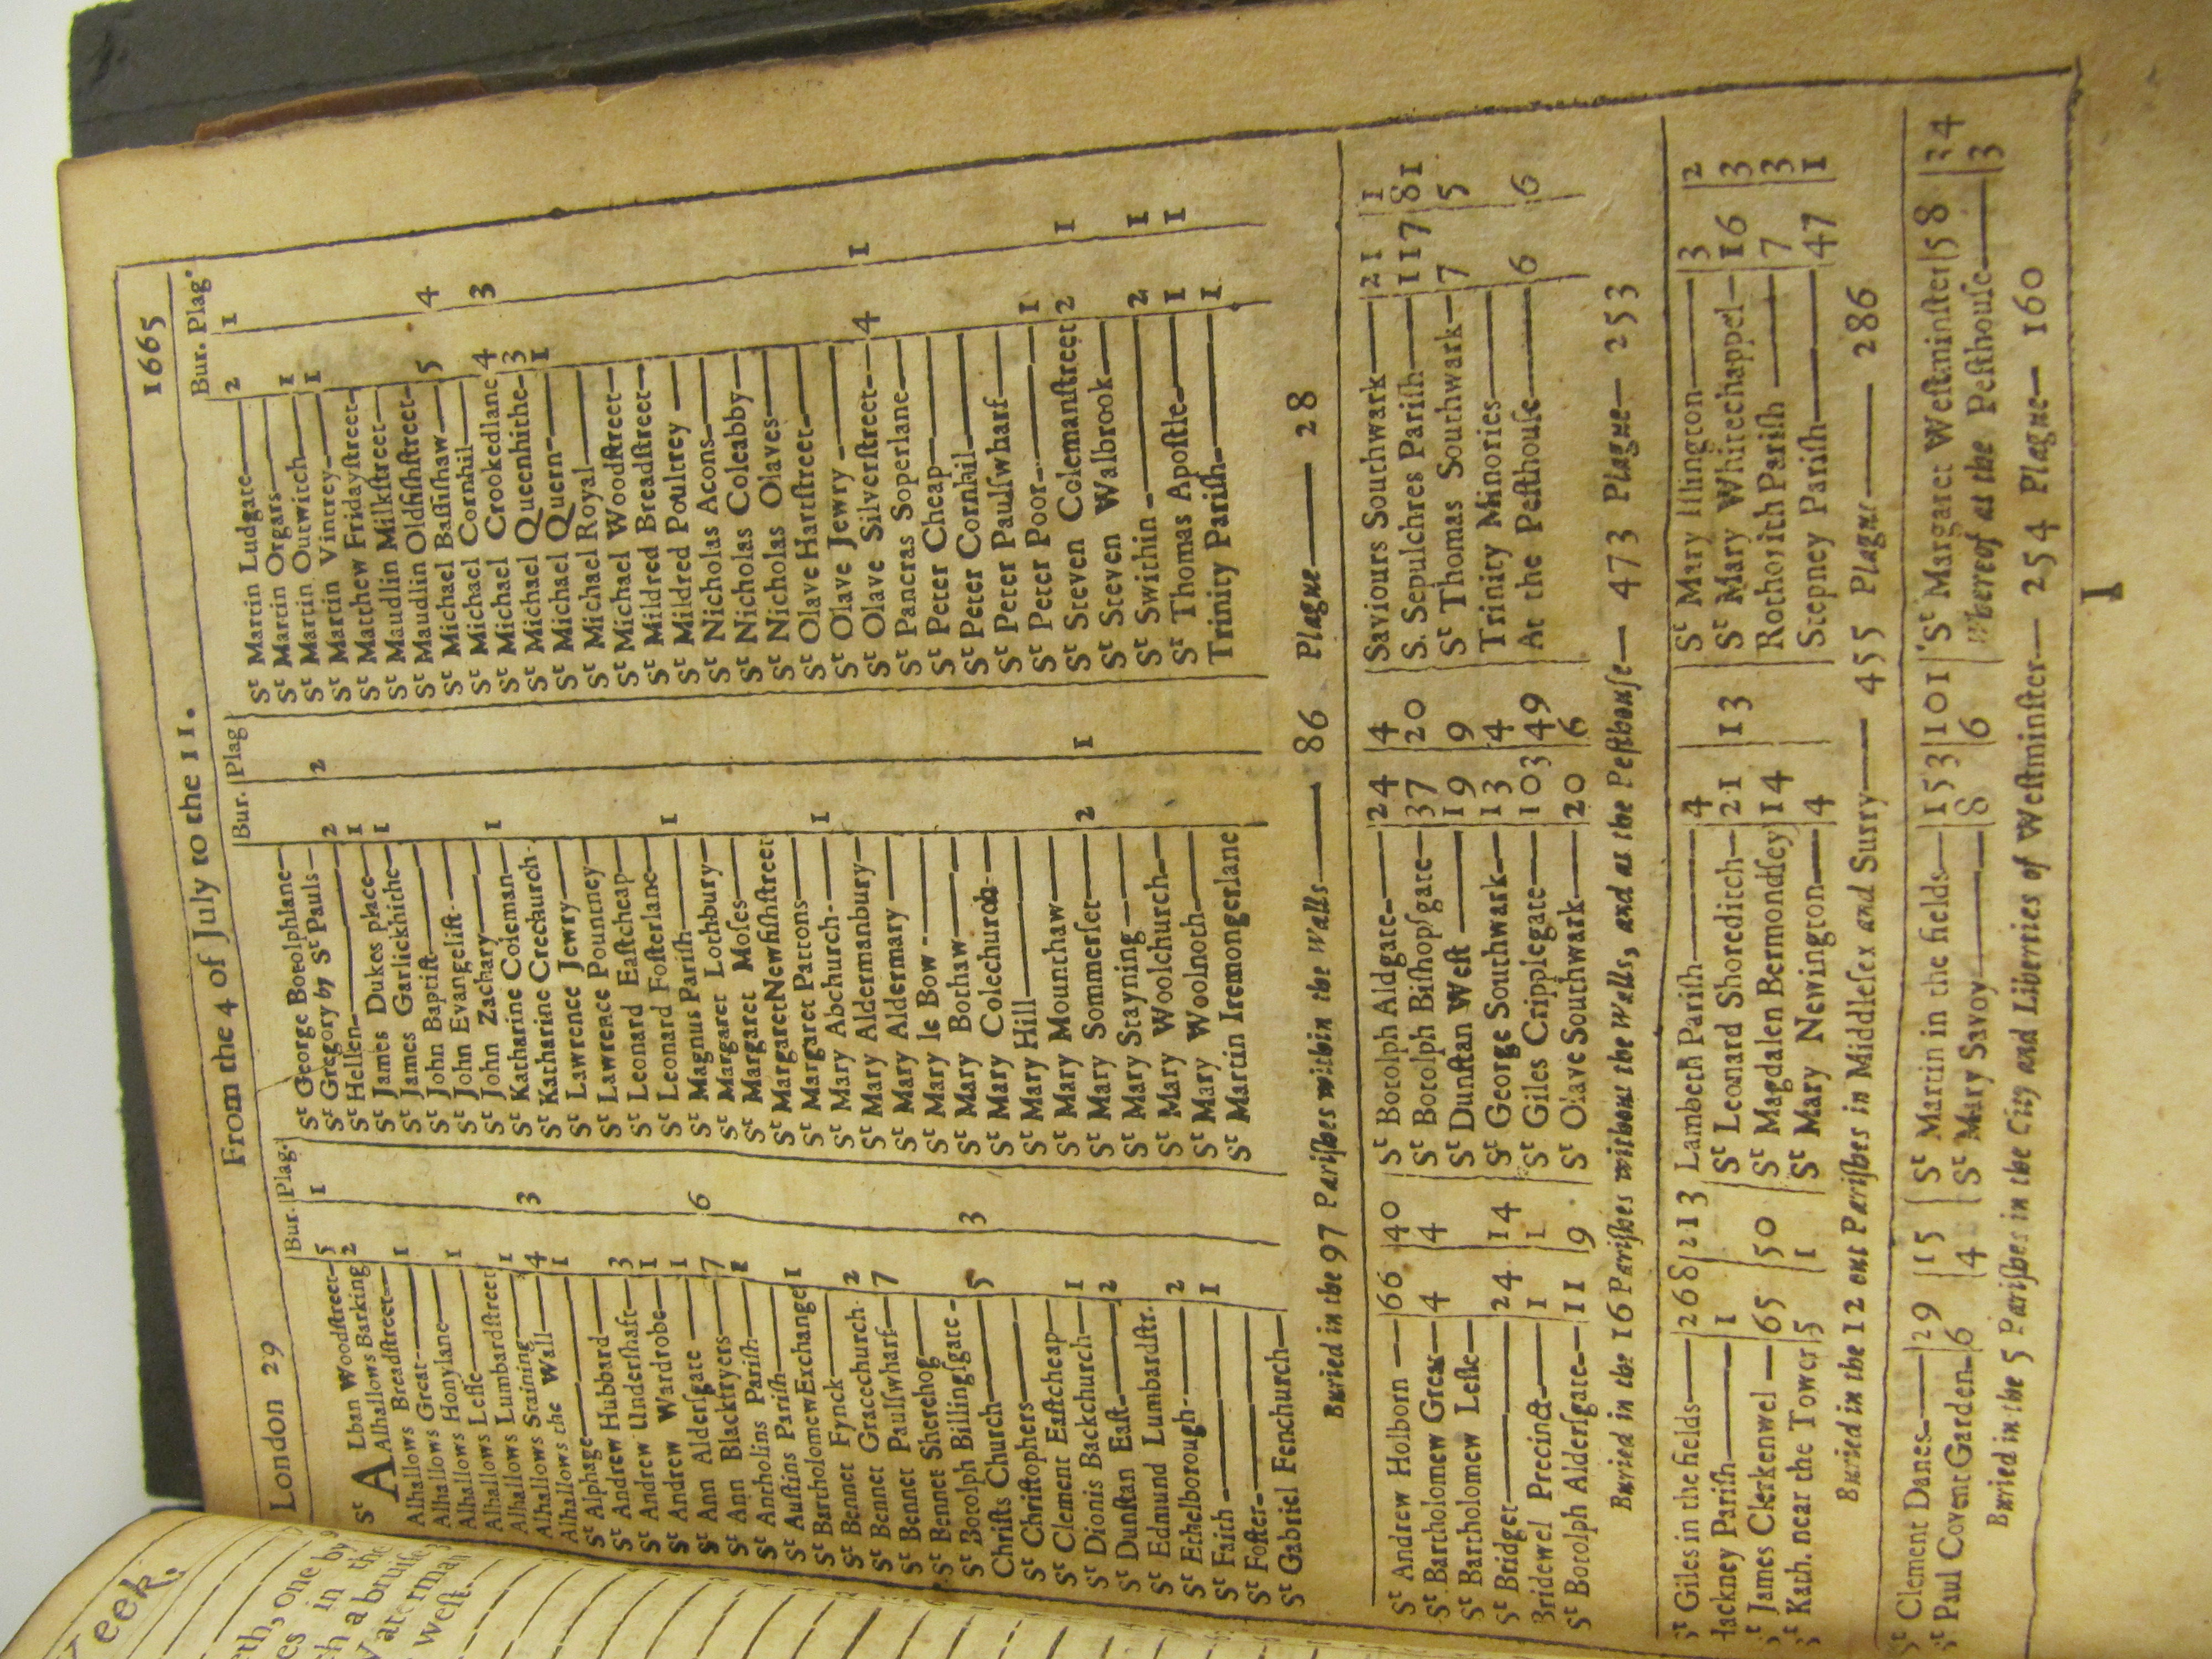 London 29 From the 4 of July to the 11. 1665
Bur. Plag.
St ALban Woodstreet 5 1
Alhallows Barking 2
Alhallows Breadstreet
Alhallows Great 1
Alhallows Honylane
Alhallows Lesse 1
Alhallows Lumbardstreet
Alhallows Staining 1
Alhallows the Wall 4 3
St Alphage 1
St Andrew Hubbard
St Andrew Undershaft 3
St Andrew Wardrobe 1
St Ann Aldersgate 1
St Ann Blackfryers 7 6
St Antholins Parish 1
St Austins Parish
St Bartholomew Exchange 1
St Bennet Fynck
St Bennet Gracechurch 2
St Bennet Paulswharf 7
St Bennet Sherehog
St Botolph Billingsgate
Christs Church 5 3
St Christophers
St Clement Eastcheap
St Dionis Backchurch 1
St Dunstan East 2
St Edmund Lumbardstr.
St Ethelborough 2
St Faith 1
St Foster
St Gabriel Fenchurch
Bur. Plag
St George Botolphlane
St Gregory by St Pauls
St Hellen 2 2
St James Dukes place 1
St James Garlickhithe 1
St John Baptist
St John Evangelist
St John Zachary
St Katharine Coleman 1
St Katharine Crechurch
St Lawrence Jewry
St Lawrence Pountney
St Leonard Eastcheap
St Leonard Fosterlane
St Magnus Parish 1
St Margaret Lothbury
St Margaret Moses
St Margaret Newfishstreet
St Margaret Pattons
St Mary Abchurch 1
St Mary Aldermanbury
St Mary Aldermary
St Mary le Bow
St Mary Bothaw
St Mary Colechurch
St Mary Hill
St Mary Mounthaw
St Mary Sommerset 2 1
St Mary Stayning
St Mary Woolchurch
St Mary Woolnoth
St Martin Iremongerlane
Bur. Plag.
St Martin Ludgate 2 1
St Martin Orgars
St Martin Outwitch 1
St Martin Vintrey 1
St Matthew Fridaystreet
St Maudlin Milkstreet
St Maudlin Oldfishstreet
St Michael Bassishaw 5 4
St Michael Cornhil
St Michael Crookedlane 4 3
St Michael Queenhithe 3
St Michael Quern 1
St Michael Royal
St Michael Woodstreet
St Mildred Breadstreet
St Mildred Poultrey
St Nicholas Acons
St Nicholas Coleabby
St Nicholas Olaves
St Olave Hartstreet
St Olave Jewry
St Olave Silverstreet 4 1
St Pancras Soperlane
St Peter Cheap
St Peter Cornhil
St Peter Paulswharf
St Peter Poor 1
St Steven Colemanstreet 2 1
St Steven Walbrook
St Swithin 2 1
St Thomas Apostle 1 1
Trinity Parish 1
Buried in the 97 Parishes within the Walls 86 Plague 28
St Andrew Holborn 66 40
St Bartholomew Great 4 4
St Bartholomew Lesse
St Bridget 24 14
Bridewel Precinct 1 1
St Botolph Aldersgate 11 9
St Botolph Aldgate 24 4
St Botolph Bishopsgate 37 20
St Dunstan West 19 9
St George Southwark 13 4
St Giles Cripplegate 103 49
St Olave Southwark 20 6
Saviours Southwark 21 1
S. Sepulchres Parish 117 81
St Thomas Southwark 7 5
Trinity Minories
At the Pesthouse 6 6
Buried in the 16 Parishes without the Walls, and at the Pesthouse 473 Plague 253
St Giles in the fields 268 213
Hackney Parish 1
St James Clerkenwel 65 50
St Kath. near the Tower 5 1
Lambeth Parish 4
St Leonard Shoreditch 21 13
St Magdalen Bermondsey 14
St Mary Newington 4
St Mary Islington 3 2
St Mary Whitechappel 16 3
Rothorith Parish 7 3
Stepney Parish 47 1
Buried in the 12 out Parishes in Middlesex and Surry 455 Plague 286
St Clement Danes 29 15
St Paul Covent Garden 6 4
St Martin in the fields 153 101
St Mary Savoy 8 6
St Margaret Westminster 58 34
Whereof at the Pesthouse 3
Buried in the 5 Parishes in the City and Liberties of Westminster 254 Plague 160
I
eek.
one by
in the
a bruise